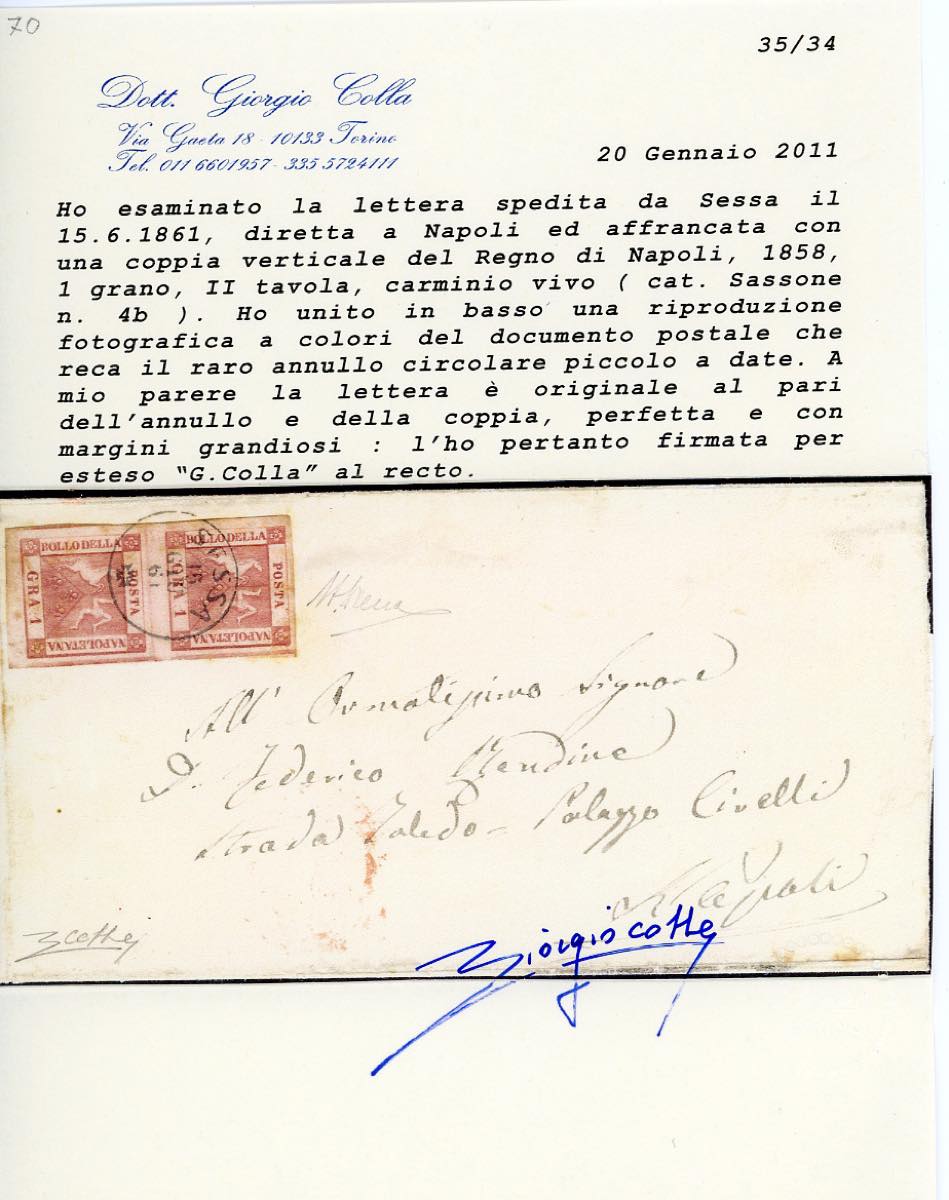 70
35/34
Dott. Giorgio Colla
Via Gaeta 18 - 10133 Torino
Tel. 011 6601957 - 335 5724111
20 Gennaio 2011
Ho esaminato la lettera spedita da Sessa il
15.6.1861, diretta a Napoli ed affrancata con
una coppia verticale del Regno di Napoli, 1858,
1 grano, II tavola, carminio vivo ( cat. Sassone
n. 4b ). Ho unito in basso una riproduzione
fotografica a colori del documento postale che
reca il raro annullo circolare piccolo a date. A
mio parere la lettera è originale al pari
dell'annullo e della coppia, perfetta e con
margini grandiosi : l'ho pertanto firmata per
esteso “G.Colla” al recto.
BOLLO DELLA
POSTA
NAPOLETANA
GRA 1
BOLLO DELLA
POSTA
NAPOLETANA
GRA 1
SESSA
15
GIU
61
All' Ornatissimo Signore
D. Federico
Strada Toledo - Palazzo Civelli
Napoli
G Colla
Giorgio Colla